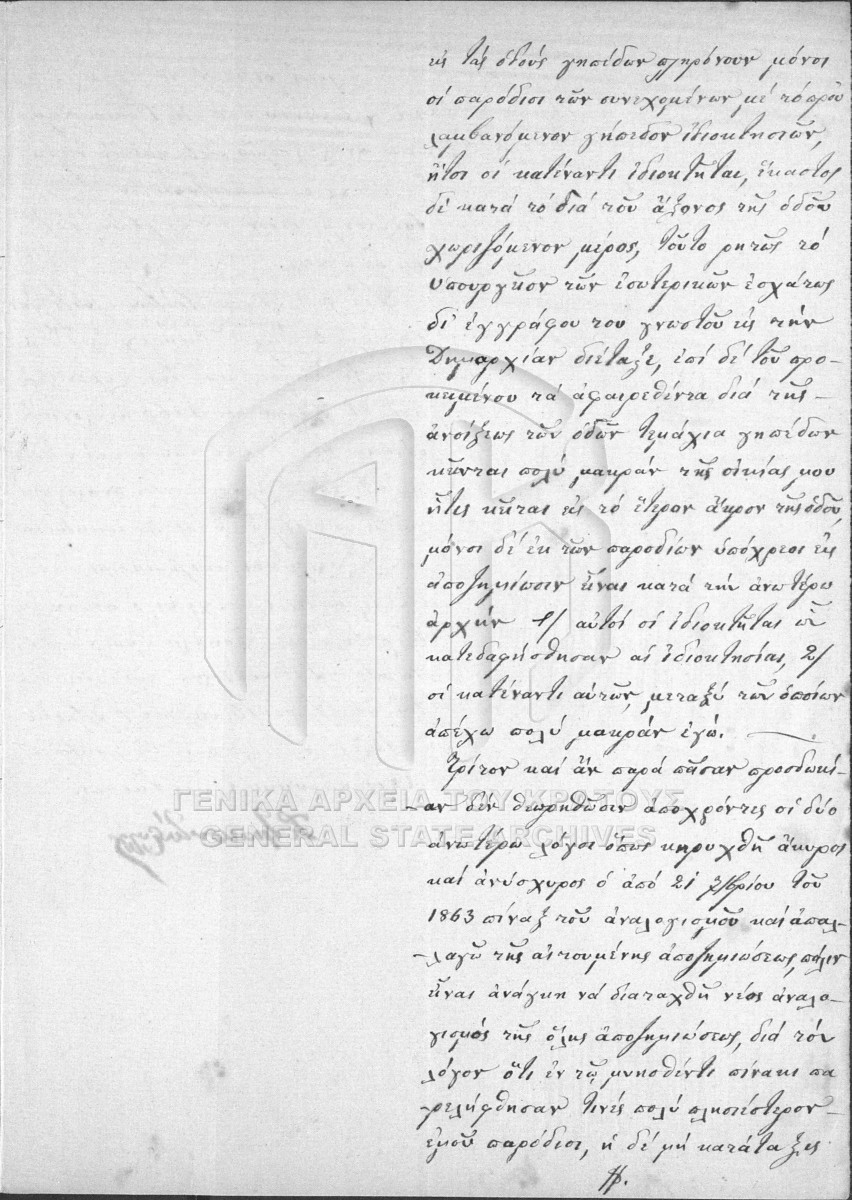 εἰς τὰς ὁδοὺς γηπέδων πληρόνουν μόνοι
οἱ παρόδιοι τῶν συνεχομένων μὲ τὸ προσ
λαμβανόμενον γήπεδον ἰδιοκτησιῶν,
ἤτοι οἱ κατέναντι ἰδιοκτῆται, ἕκαστος
δὲ κατὰ τὸ διὰ τοῦ ἄξονος τῆς ὁδοῦ
χωριζόμενον μέρος, τοῦτο ρητῶς τὸ
Ὑπουργεῖον τῶν ἐσωτερικῶν ἐσχάτως
δι' ἐγγράφου του γνωστοῦ εἰς τὴν
Δημαρχίαν διέταξε, ἐπὶ δὲ τοῦ προ-
κειμένου τὰ ἀφαιρεθέντα διὰ τῆς -
ἀνοίξεως τῶν ὁδῶν τεμάχια γηπέδων
κεῖνται πολὺ μακρὰν τῆς οἰκίας μου
ἥτις κεῖται εἰς τὸ ἕτερον ἄκρον τῆς ὁδοῦ,
μόνοι δὲ ἐκ τῶν παροδίων ὑπόχρεοι εἰς
ἀποζημίωσιν εἶναι κατὰ τὴν ἀνωτέρω
ἀρχὴν 1/ αὐτοὶ οἱ ἰδιοκτῆται ὧν
κατεδαφίσθησαν αἱ ἰδιοκτησίαι, 2/
οἱ κατέναντι αὐτῶν, μεταξὺ τῶν ὁποίων
ἀπέχω πολὺ μακρὰν ἐγώ. —
Τρίτον καὶ ἂν παρὰ πᾶσαν προσδωκί-
-αν δὲν θεωρηθῶσιν ἀποχρῶντες οἱ δύο
ἀνωτέρω λόγοι ὅπως κηρυχθῇ ἄκυρος
καὶ ἀνίσχυρος ὁ ἀπὸ 21 βρίου τοῦ
1863 πίναξ τοῦ ἀναλογισμοῦ καὶ ἀπαλ-
-λαγῶ τῆς αἰτουμένης ἀποζημιώσεως, πάλιν
εἶναι ἀνάγκη νὰ διαταχθῇ νέος ἀναλο-
γισμὸς τῆς ὅλης ἀποζημιώσεως, διὰ τὸν
λόγον ὅτι ἐν τῷ μνησθέντι πίνακι πα
ρελήφθησαν τινὲς πολὺ πλησιέστερον -
ἐμοῦ παρόδιοι, ἡ δὲ μὴ κατάταξις
ΓΕΝΙΚΑ ΑΡΧΕΙΑ ΤΟΥ ΚΡΑΤΟΥΣ
GENERAL STATE ARCHIVES